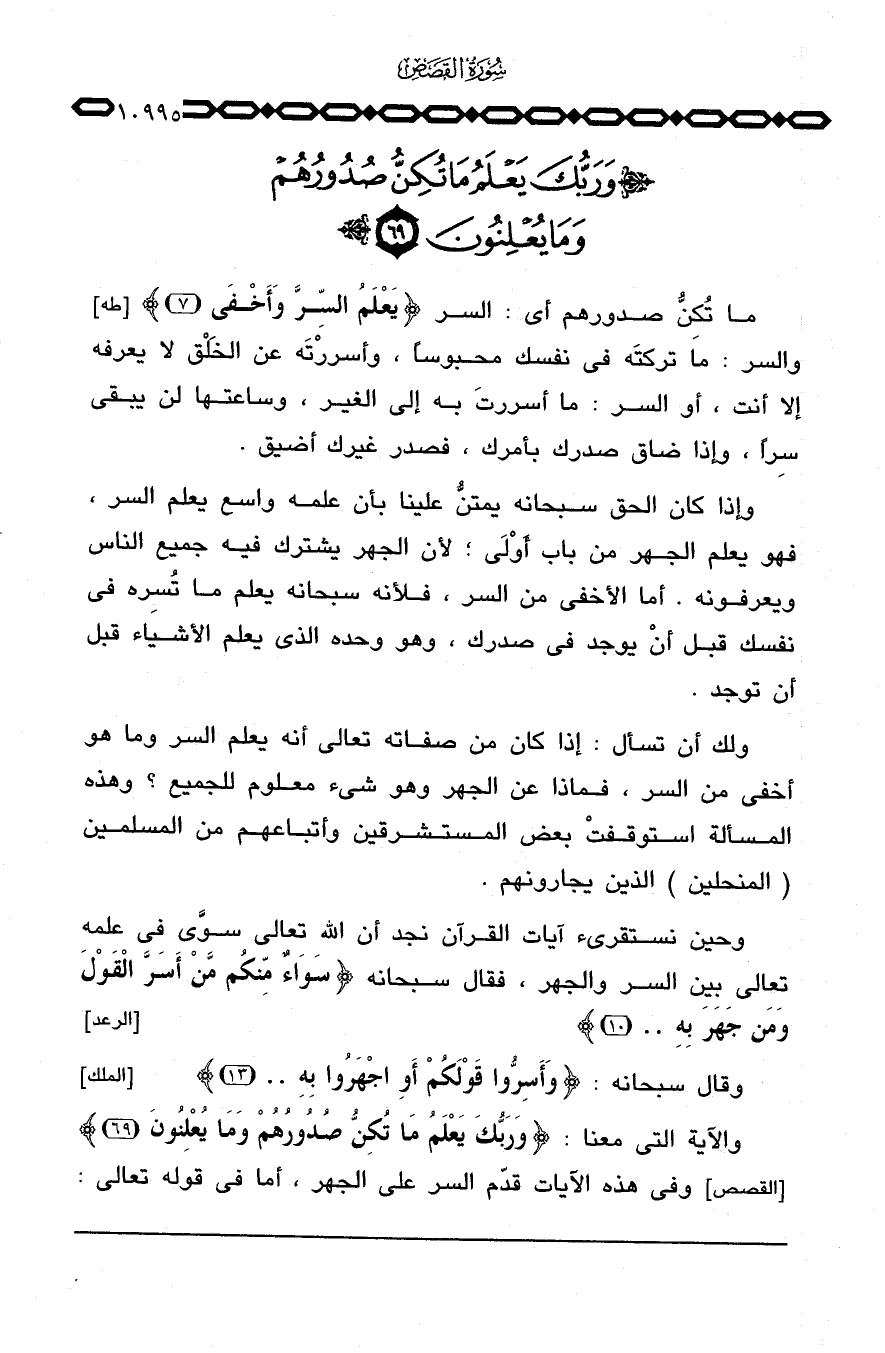 سُورَةُ القَصَصِ
١٠٩٩٥
﴿وَرَبُّكَ يَعْلَمُ مَا تُكِنُّ صُدُورُهُمْ
وَمَا يُعْلِنُونَ ٦٩﴾
ما تُكِنُّ صدورهم أى : السر ﴿يَعْلَمُ السِّرَّ وَأَخْفَى (٧)﴾ [طه]
والسر : ما تركتَه فى نفسك محبوساً ، وأسررْتَه عن الخَلْق لا يعرفه
إلا أنت ، أو السر : ما أسررتَ به إلى الغير ، وساعتها لن يبقى
سِراً ، وإذا ضاق صدرك بأمرك ، فصدر غيرك أضيق .
وإذا كان الحق سبحانه يمتنُّ علينا بأن علمه واسع يعلم السر ،
فهو يعلم الجهر من باب أَوْلَى ؛ لأن الجهر يشترك فيه جميع الناس
ويعرفونه . أما الأخفى من السر ، فلأنه سبحانه يعلم ما تُسِره فى
نفسك قبل أنْ يوجد فى صدرك ، وهو وحده الذى يعلم الأشياء قبل
أن توجد .
ولك أن تسأل : إذا كان من صفاته تعالى أنه يعلم السر وما هو
أخفى من السر ، فماذا عن الجهر وهو شىء معلوم للجميع ؟ وهذه
المسألة استوقفتْ بعض المستشرقين وأتباعهم من المسلمين
( المنحلين ) الذين يجارونهم .
وحين نستقرىء آيات القرآن نجد أن الله تعالى سوَّى فى علمه
تعالى بين السر والجهر ، فقال سبحانه ﴿سَوَاءٌ مِّنكُم مَّنْ أَسَرَّ الْقَوْلَ
وَمَن جَهَرَ بِهِ .. (١٠)﴾ [الرعد]
وقال سبحانه : ﴿وَأَسِرُّوا قَوْلَكُمْ أَوِ اجْهَرُوا بِهِ .. (١٣)﴾ [الملك]
والآية التى معنا : ﴿وَرَبُّكَ يَعْلَمُ مَا تُكِنُّ صُدُورُهُمْ وَمَا يُعْلِنُونَ (٦٩)﴾
[القصص] وفى هذه الآيات قدّم السر على الجهر ، أما فى قوله تعالى :